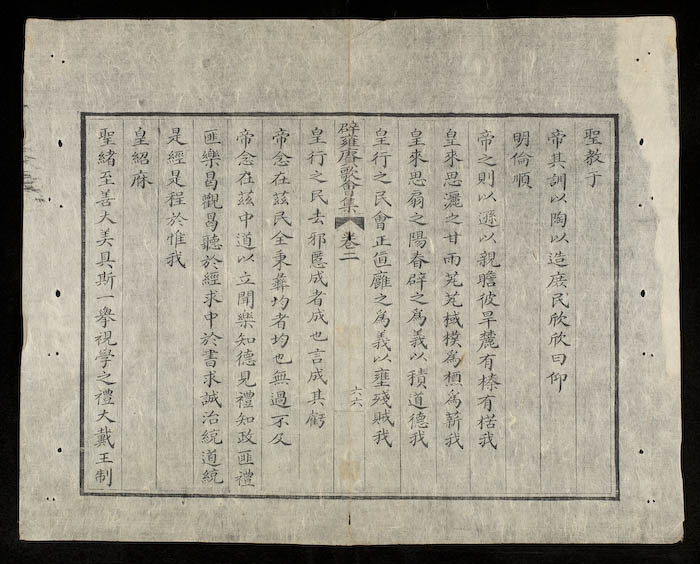 聖教于
帝其訓以陶以造庶民欣欣曰仰
明倫順
帝之則以遜以親瞻彼旱麓有榛有楛我
皇來思灑之甘雨芃芃棫樸為槱為薪我
皇來思扇之陽春辟之為義以積道德我
皇行之民會正值廱之為義以壅殘賊我
辟雍賡歌會集 卷二 六六
皇行之民去邪慝成者成也言成其虧
帝念在茲民全秉彝均者均也無過不及
帝念在茲中道以立聞樂知德見禮知政匪禮
匪樂曷觀曷聽於經求中於書求誠治統道統
是經是程於惟我
皇紹庥
聖緒至善大美具斯一舉視學之禮大戴王制